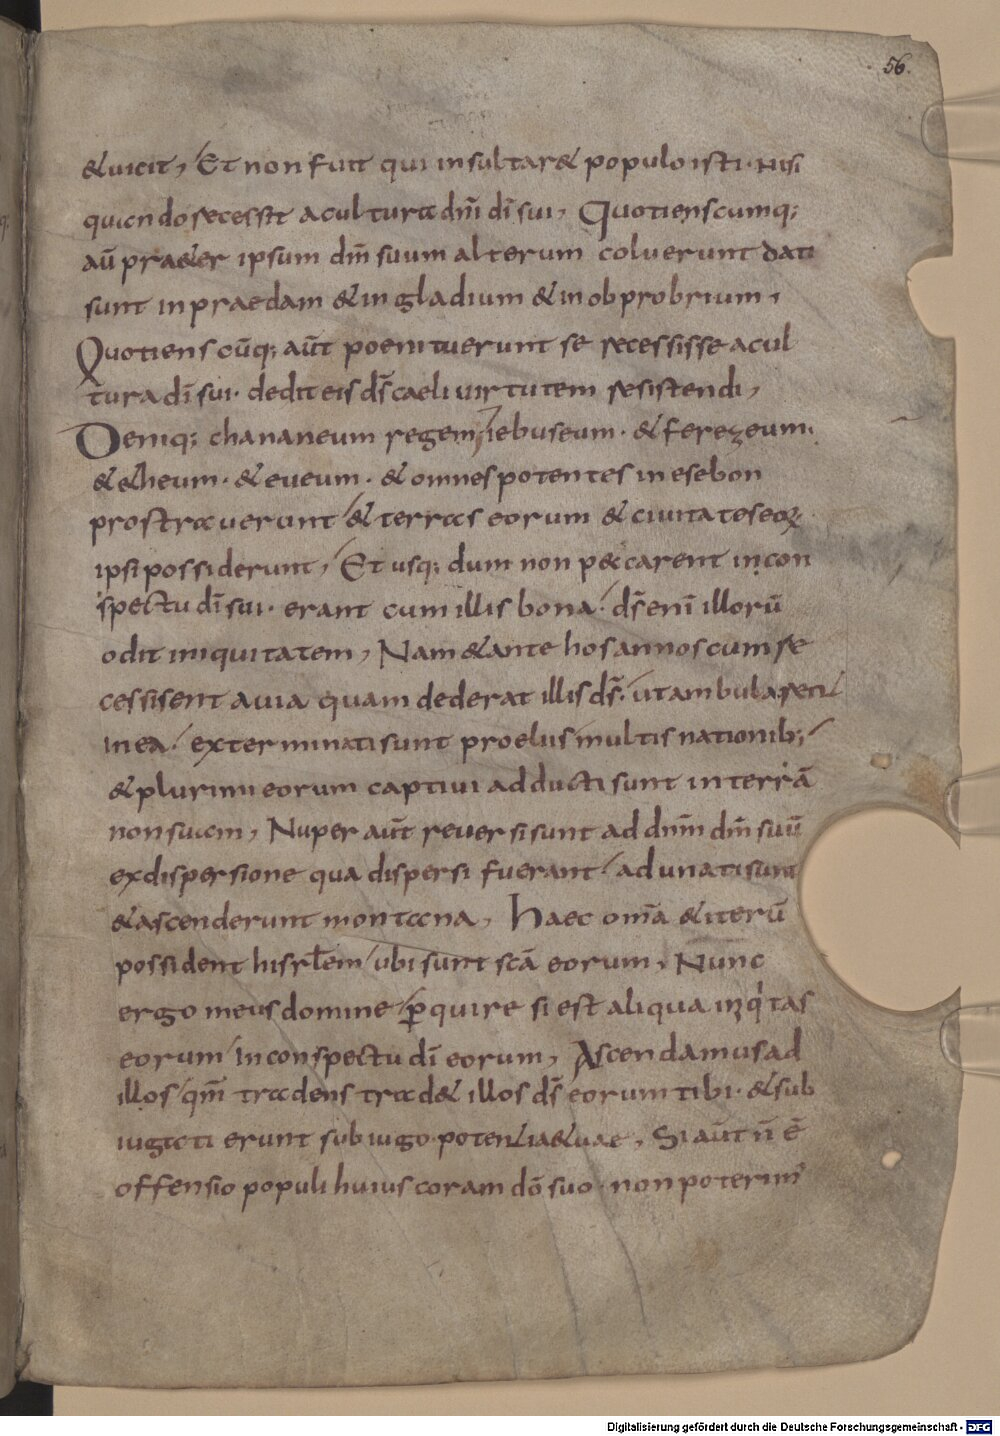 56.
&uicit, Et non fuit qui insultar& populo isti· nisi
quando recessit a cultura dñi dī sui, Quotienscumq;
aū pra&er ipsum dm̄ suum alterum coluerunt dati
sunt in praedam & in gladium & in obprobrium,
Quotienscūq; aūt poenituerunt se recessisse a cul
tura dī sui· dedit eis ds̄ caeli uirtutem resistendi,
Deniq; chananeum regem iebuseum· & ferezeum·
& &heum· & eueum· & omnes potentes in esebon
prostrauerunt & terras eorum & ciuitates eoꝝ
ipsi possiderunt, Et usq; dum non peccarent in con
spectu dī sui· erant cum illis bona· ds̄ enī illorū
odit iniquitatem, Nam & ante hos annos cum re
cessisent a uia quam dederat illis ds̄· ut ambularent
in ea· exterminati sunt proeliis multis nationib;
& plurimi eorum captiui adducti sunt in terrā
non suam, Nuper aūt reuersi sunt ad dnm̄ dm̄ suū
ex dispersione qua dispersi fuerant· adunati sunt
& ascenderunt montana, Haec om̄a & iterū
possident hisrłem ubi sunt scā eorum, Nunc
ergo meus domine ꝑquire si est aliqua iniq'tas
eorum in conspectu dī eorum, Ascendamus ad
illos qm̄ tradens trad& illos ds̄ eorum tibi· & sub
iugati erunt sub iugo potentia&uae, Si aūt n̄ ē
offensio populi huius coram dō suo· non poterim'
Digitalisierung gefördert durch die Deutsche Forschungsgemeinschaft - DFG